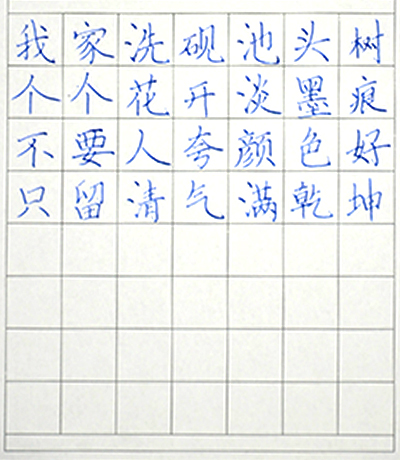 我家洗砚池头树
个个花开淡墨痕
不要人夸颜色好
只留清气满乾坤